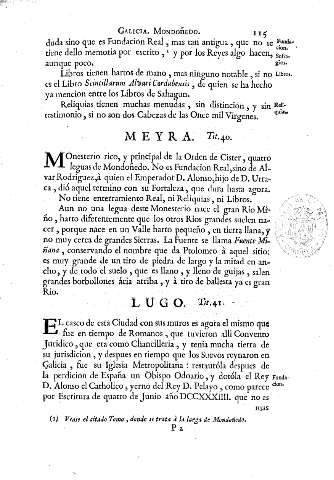 GALICIA. MONDOÑEDO. 115
duda sino que es Fundacion Real, mas tan antigua, que no se
tiene dello memoria por escrito, y por los Reyes algo hacen,
aunque poco.
Funda-
cion.
Sufra-
gios.
Libros tienen hartos de mano, mas ninguno notable, si no
es el Libro Scintillarum Alvari Cordubensis, de quien se ha hecho
ya mencion entre los Libros de Sahagun.
Libros.
Reliquias tienen muchas menudas, sin distincion, y sin
testimonio, si no son dos Cabezas de las Once mil Virgenes.
Reli-
quias.
MEYRA. Tit. 40.
Monesterio rico, y principal de la Orden de Cister, quatro
leguas de Mondoñedo. No es Fundacion Real, sino de Al-
var Rodriguez, à quien el Emperador D. Alonso, hijo de D. Urra-
ca, dió aquel termino con su Fortaleza, que dura hasta agora.
No tiene enterramiento Real, ni Reliquias, ni Libros.
Aun no una legua deste Monesterio nace el gran Rio Mi-
ño, harto diferentemente que los otros Rios grandes suelen na-
cer, porque nace en un Valle harto pequeño, en tierra llana, y
no muy cerca de grandes Sierras. La Fuente se llama Fuente Mi-
ñana, conservando el nombre que da Ptolomeo à aquel sitio:
es muy grande de un tiro de piedra de largo y la mitad en an-
cho, y de todo el suelo, que es llano, y lleno de guijas, salen
grandes borbollones ácia arriba, y à tiro de ballesta ya es gran
Rio.
LUGO. Tit. 41.
EL casco de esta Ciudad con sus muros es agora el mismo que
fue en tiempo de Romanos, que tuvieron alli Convento
Juridico, que era como Chancilleria, y tenia mucha tierra de
su jurisdicion, y despues en tiempo que los Suevos reynaron en
Galicia, fue su Iglesia Metropolitana: restauróla despues de
la perdicion de España un Obispo Odoario, y dotóla el Rey
D. Alonso el Catholico, yerno del Rey D. Pelayo, como parece
por Escritura de quatro de Junio año DCCXXXIII. que no es
Funda-
cion.
mas
(1) Vease el citado Tomo, donde se trata à la larga de Mondoñedo.
P 2